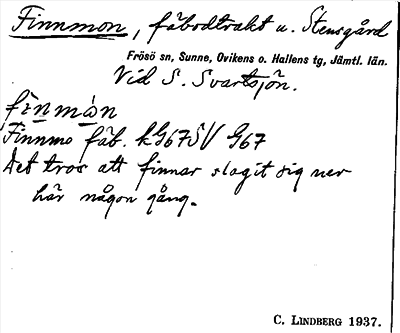 Finnmon, fäbodtrakt u. Stensgård
Frösö sn, Sunne, Ovikens o. Hallens tg, Jämtl. län.
Vid S. Svartsjön.
fìnmàn
Finnmo fäb. kG67SV G67
Det tros att finnar slagit sig ner
här någon gång.
C. LINDBERG 1937.